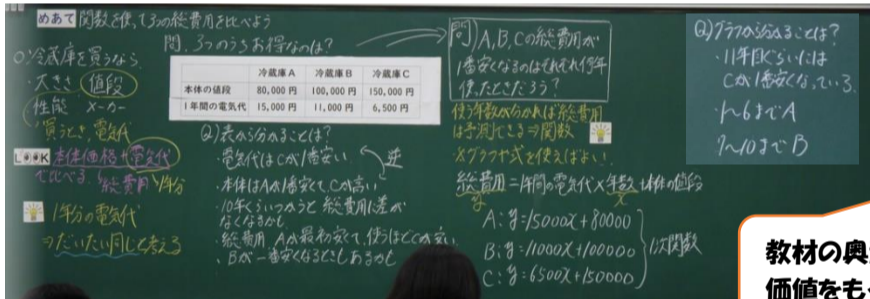 めあて 関数を使って3つの総費用を比べよう
○冷蔵庫を買うなら
・大きさ 値段
性能 メーカー
買うとき、電気代
LOOK 本体価格+電気代
で比べる。総費用 1年分
1年分の電気代
⇒だいたい同じと考える
問. 3つのうちお得なのは?
冷蔵庫A 冷蔵庫B 冷蔵庫C
本体の値段 80,000円 100,000円 150,000円
1年間の電気代 15,000円 11,000円 6,500円
Q)表から分かることは?
・電気代はCが1番安い
逆
・本体はAが1番安くて、Cが高い
・10年くらいつかうと総費用に差が
なくなるかも
・総費用 Aが最初安くて、使うほどCが安い
・Bが一番安くなるときもあるのも
問 A,B,Cの総費用が
1番安くなるのはそれぞれ何年
使ったときだろう?
使う年数が分かれば総費用
は予測できる⇒関数
※グラフや式を使えばよい!
総費用=1年間の電気代×年数+本体の値段
y x
A:y=15000x+80000
B:y=11000x+100000
C:y=6500x+150000
1次関数
Q)グラフから分かることは?
・11年目ぐらいには
Cが1番安くなっている。
・1~6までA
7~10までB
教材の奥
価値をも